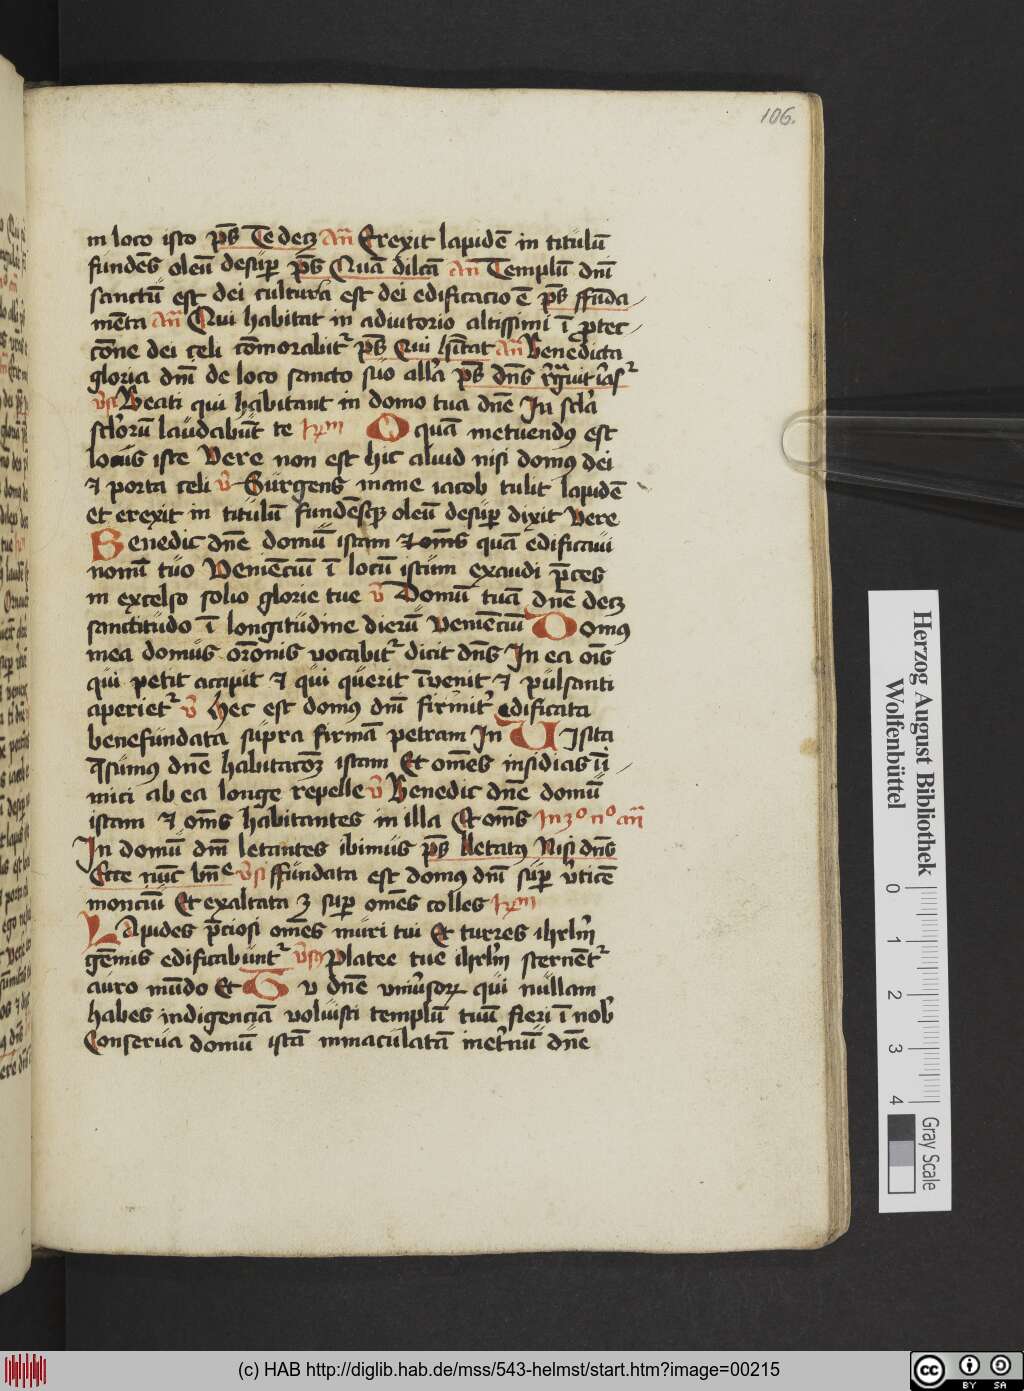 106.
in loco isto p̄s Te decꝫ an̄ Erexit lapidē in titulū
fundēs oleū desup̄ p̄s Quā dilcā an̄ Templū dn̄i
sanctū est dei cultura est dei edificacio ē p̄s ffūda
mēta an̄ Qui habitat in adiutorio altissimi ī protec
cōne dei celi cōmorabit᷑ p̄s Qui hītat an̄ Benedicta
gloria dn̄i de loco sancto suo all'a p̄s dn̄s
Beati qui habitant in domo tua dn̄e In scl'a
scl'orū laudabūt te O quā metuendꝰ est
locus iste Vere non est hic aliud nisi domꝰ dei
⁊ porta celi v̄ Surgens mane iacob tulit lapidē
et erexit in titulū fundēsqꝫ oleū desup̄ dixit Vere
Benedic dn̄e domū istam ⁊ om̄s quā edificaui
nomī tuo Veniēciū ī locū istum exaudi p̄ces
in excelso solio glorie tue v̄ Domū tuā dn̄e decꝫ
sanctitudo ī longitudine dierū Veniēciū Domꝰ
mea domus orōnis vocabit᷑ dicit dn̄s In ea oīs
qui petit accipit ⁊ qui querit īvenit ⁊ pulsanti
aperiet᷑ v̄ Hec est domꝰ dn̄i firmit᷑ edificata
benefundata supra firmā petram In Uisita
q̄sumꝰ dn̄e habitacōꝫ istam Et om̄es insidias ī
mici ab ea longe repelle v̄ Benedic dn̄e domū
istam ⁊ om̄s habitantes in illa Et om̄s In 3º nº an̄
In domū dn̄i letantes ibimus p̄s Letatꝰ Nisi dn̄s
Ecce nūc bn̄e v̄si ffundata est domꝰ dn̄i sup̄ v̄ticē
monciū Et exaltata ꝫ sup̄ om̄es colles
LApides p̄ciosi om̄es muri tui Et turres ihrl'm
gēmis edificabunt᷑ Platee tue ihrl'm sternēt᷑
auro mūdo Et Tu dn̄e vniūsoꝝ qui nullam
habes indigenciā voluisti templū tuū fieri ī nob'
Conserua domū istā inmaculatā inet'nū dn̄e
Herzog August Bibliothek
Wolfenbüttel
0 1 2 3 4
Gray Scale
(c) HAB http://diglib.hab.de/mss/543-helmst/start.htm?image=00215
cc BY SA